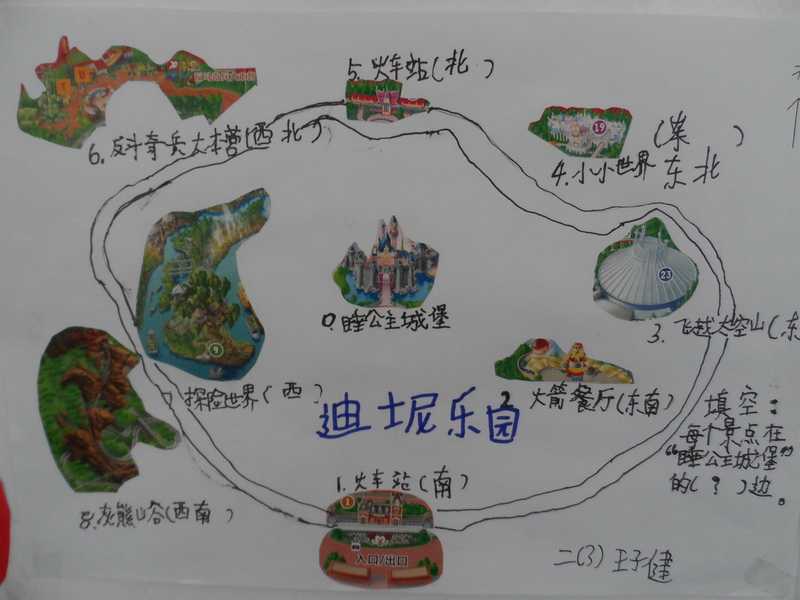 5. 火车站(北)
反斗奇兵大本营
6. 反斗奇兵大本营(西北)
19
(东)
4. 小小世界 东北
23
3. 飞越太空山(东
0. 睡公主城堡
9
7. 探险世界(西)
2. 火箭餐厅(东南)
迪士尼乐园
填空：
每个景点在
“睡公主城堡”
的(?)边。
1. 火车站(南)
8. 灰熊山谷(西南)
1
入口/出口
二(3) 王子健